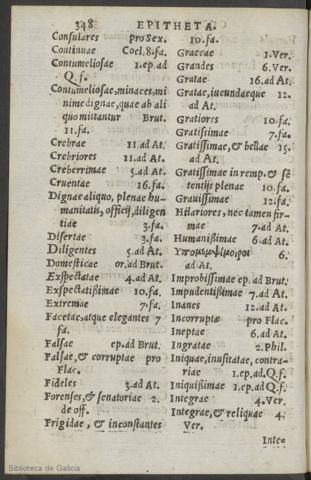 348 EPITHETA.
Consulares pro Sex. 10.fa.
Continuae Coel.8.fa.
Contumeliosae 1.ep.ad
Q.f.
Contumeliosae, minaces, mi
nime dignae, quae ab ali
quo mittantur Brut.
11.fa.
Crebrae 11.ad At.
Crebriores 11.ad At.
Creberrimae 5.ad At.
Cruentae 16.fa.
Dignae aliquo, plenae hu-
manitatis, officij, diligen
tiae 3.fa.
Disertae 3.fa.
Diligentes 5.ad At.
Domesticae or.ad Brut.
Exspectatae 4.ad At.
Exspectatißimae 10.fa.
Extremae 7.fa.
Facetae, atque elegantes 7
fa.
Falsae ep.ad Brut.
Falsae, & corruptae pro
Flac.
Fideles 3.ad At.
Forenses, & senatoriae 2.
de off.
Frigidae, & inconstantes
Graecae 1.Ver.
Grandes 6.Ver.
Gratae 16.ad At.
Gratae, iucundaeque 12.
ad At.
Gratiores 10.fa.
Gratissimae 7.fa.
Gratissimae, & bellae 15.
ad At.
Gratissimae in remp. & sē
tentijs plenae 10.fa.
Grauissimae 12.fa.
Hilariores, nec tamen fir-
mae 7.ad At.
Humanißimae 6.ad At.
6.
ad At.
Improbissimae ep.ad Brut.
Impudentißimae 7.ad At.
Inanes 12.ad At.
Incorruptae pro Flac.
Ineptae 6.ad At.
Ingratae 2.Phil.
Iniquae, inusitatae, contra-
riae 1.ep.ad.Q.f.
Iniquißimae 1.ep.ad Q.f.
Integrae 4.Ver.
Integrae, & reliquae 4.
Ver.
Inte-
Biblioteca de Galicia